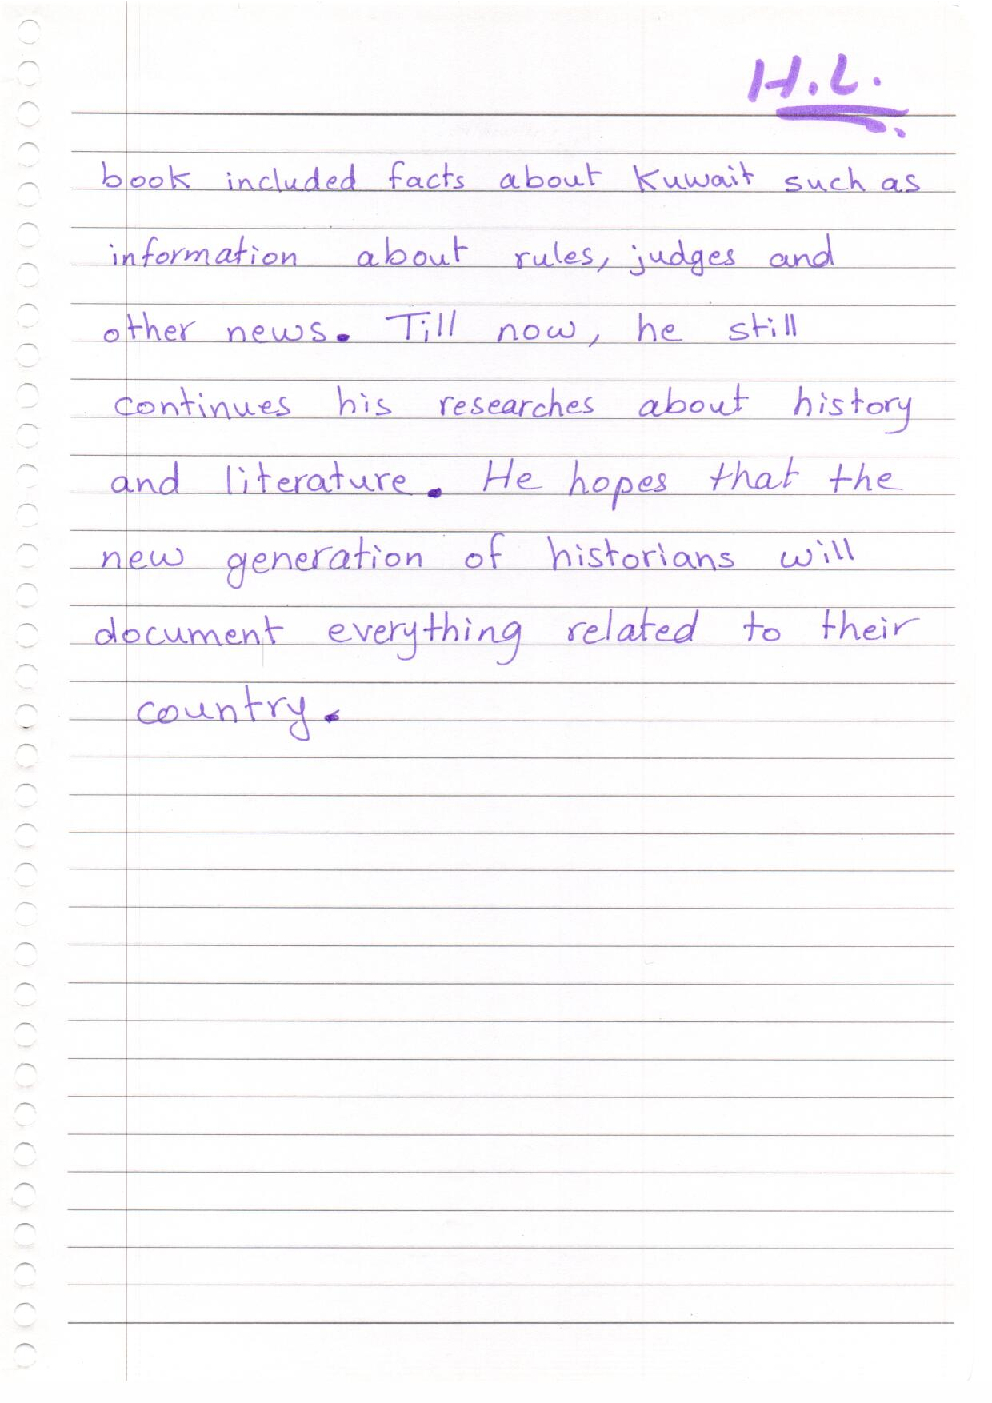 H.L.
book included facts about Kuwait such as
information about rules, judges and
other news. Till now, he still
continues his researches about history
and literature. He hopes that the
new generation of historians will
document everything related to their
country.